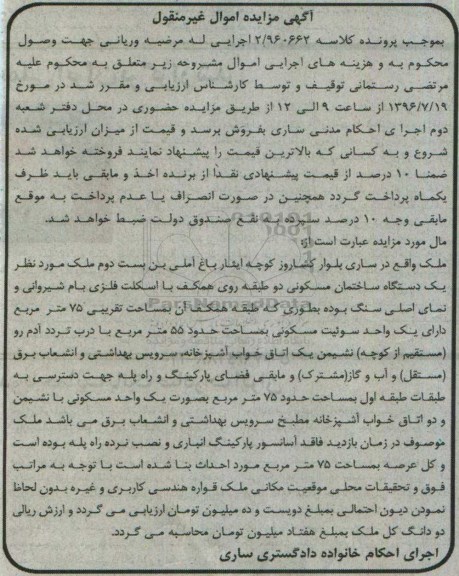 آگهی مزایده اموال غیرمنقول
بموجب پرونده کلاسه ۲/۹۶۰۶۶۲ اجرایی له مرضیه وریانی جهت وصول
محکوم به و هزینه های اجرایی اموال مشروحه زیر متعلق به محکوم علیه
مرتضی رستمانی توقیف و توسط کارشناس ارزیابی و مقرر شد در مورخ
۱۳۹۶/۷/۱۹ از ساعت ۹ الی ۱۲ از طریق مزایده حضوری در محل دفتر شعبه
دوم اجرا ی احکام مدنی ساری بفروش برسد و قیمت از میزان ارزیابی شده
شروع و به کسانی که بالاترین قیمت را پیشنهاد نمایند فروخته خواهد شد
ضمنا ۱۰ درصد از قیمت پیشنهادی نقدا از برنده اخذ و مابقی باید ظرف
یکماه پرداخت گردد همچنین در صورت انصراف یا عدم پرداخت به موقع
مابقی وجه ۱۰ درصد سپرده به نفع صندوق دولت ضبط خواهد شد.
مال مورد مزایده عبارت است از:
ملک واقع در ساری بلوار کشاورز کوچه ایثار باغ املی بن بست دوم ملک مورد نظر
یک دستگاه ساختمان مسکونی دو طبقه روی همکف با اسکلت فلزی بام شیروانی و
نمای اصلی سنگ بوده بطوری که طبقه همکف آن بمساحت تقریبی ۷۵ متر مربع
دارای یک واحد سوئیت مسکونی بمساحت حدود ۵۵ متر مربع با درب تردد آدم رو
(مستقیم از کوچه) نشیمن یک اتاق خواب آشپزخانه، سرویس بهداشتی و انشعاب برق
(مستقل) و آب و گاز(مشترک) و مابقی فضای پارکینگ و راه پله جهت دسترسی به
طبقات طبقه اول بمساحت حدود ۷۵ متر مربع بصورت یک واحد مسکونی با نشیمن
و دو اتاق خواب آشپزخانه مطبخ سرویس بهداشتی و انشعاب برق می باشد ملک
موصوف در زمان بازدید فاقد آسانسور پارکینگ انباری و نصب نرده راه پله بوده است
و کل عرصه بمساحت ۷۵ متر مربع مورد احداث بنا شده است با توجه به مراتب
فوق و تحقیقات محلی موقعیت مکانی ملک قواره هندسی کاربری و غیره بدون لحاظ
نمودن دیون احتمالی بمبلغ دویست و ده میلیون تومان ارزیابی می گردد و ارزش ریالی
دو دانگ کل ملک بمبلغ هفتاد میلیون تومان محاسبه می گردد.
اجرای احکام خانواده دادگستری ساری
ParsNamadData